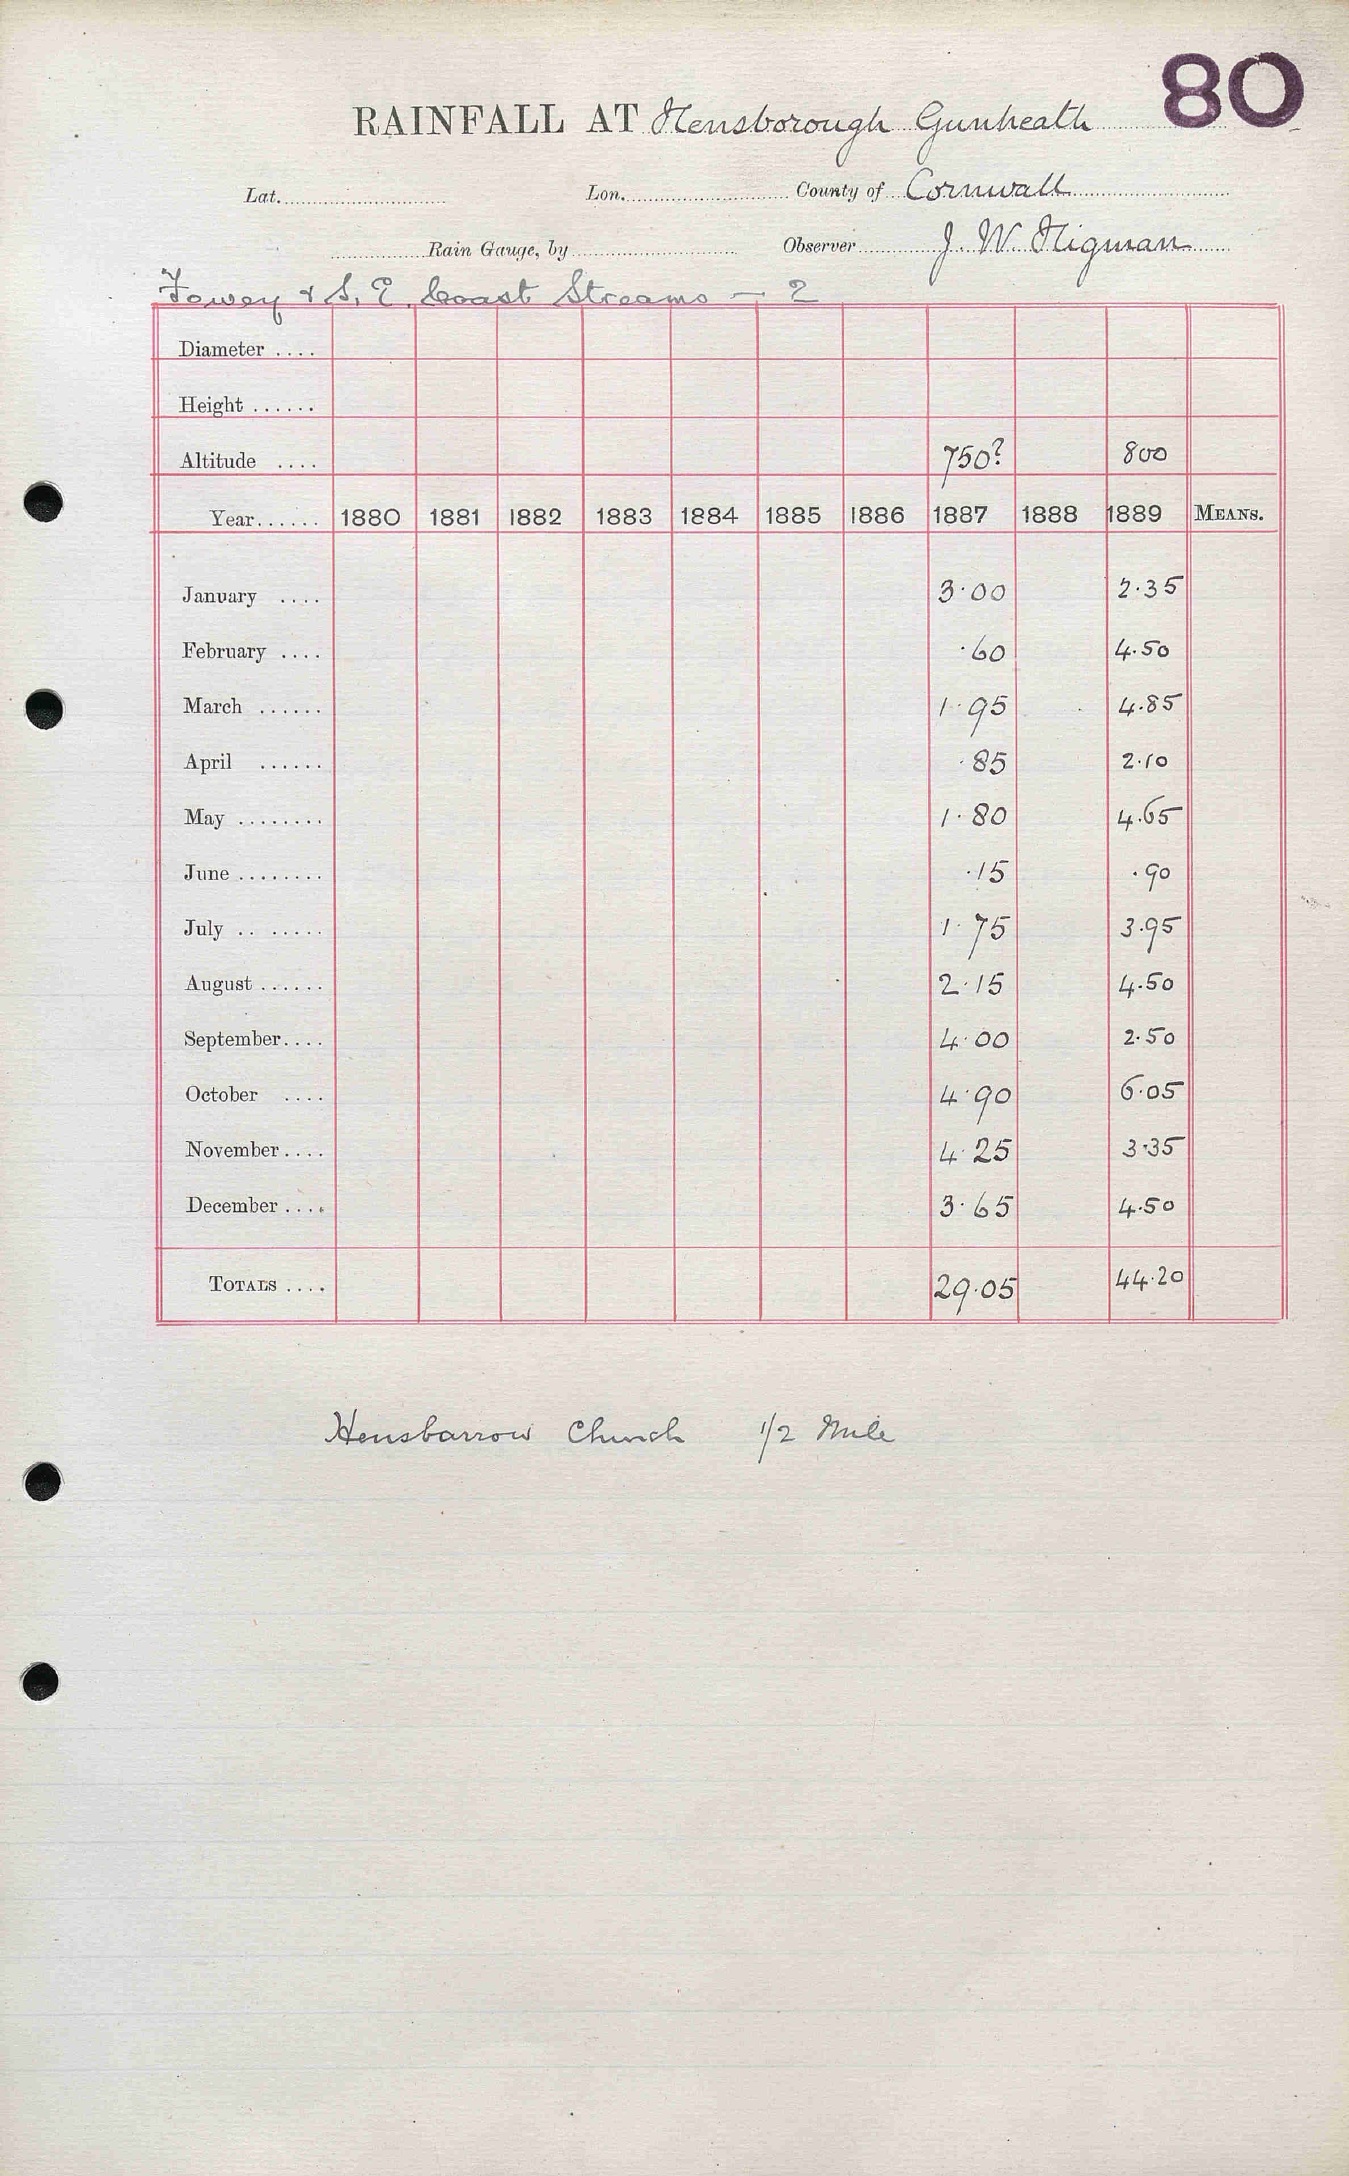 80
RAINFALL AT Hensborough Gunheath
Lat. Lon. County of Cornwall
Rain Gauge, by Observer J. W. Higman
Fowey & S. E. Coast Streams — 2
Diameter ....
Height ......
Altitude .... 750? 800
Year...... 1880 1881 1882 1883 1884 1885 1886 1887 1888 1889 MEANS.
January .... 3·00 2·35
February .... ·60 4·50
March ...... 1·95 4·85
April ...... ·85 2·10
May ........ 1·80 4·65
June ........ ·15 ·90
July .. ..... 1·75 3·95
August ...... 2·15 4·50
September.... 4·00 2·50
October .... 4·90 6·05
November.... 4·25 3·35
December.... 3·65 4·50
TOTALS .... 29·05 44·20
Hensbarrow Church 1/2 Mile